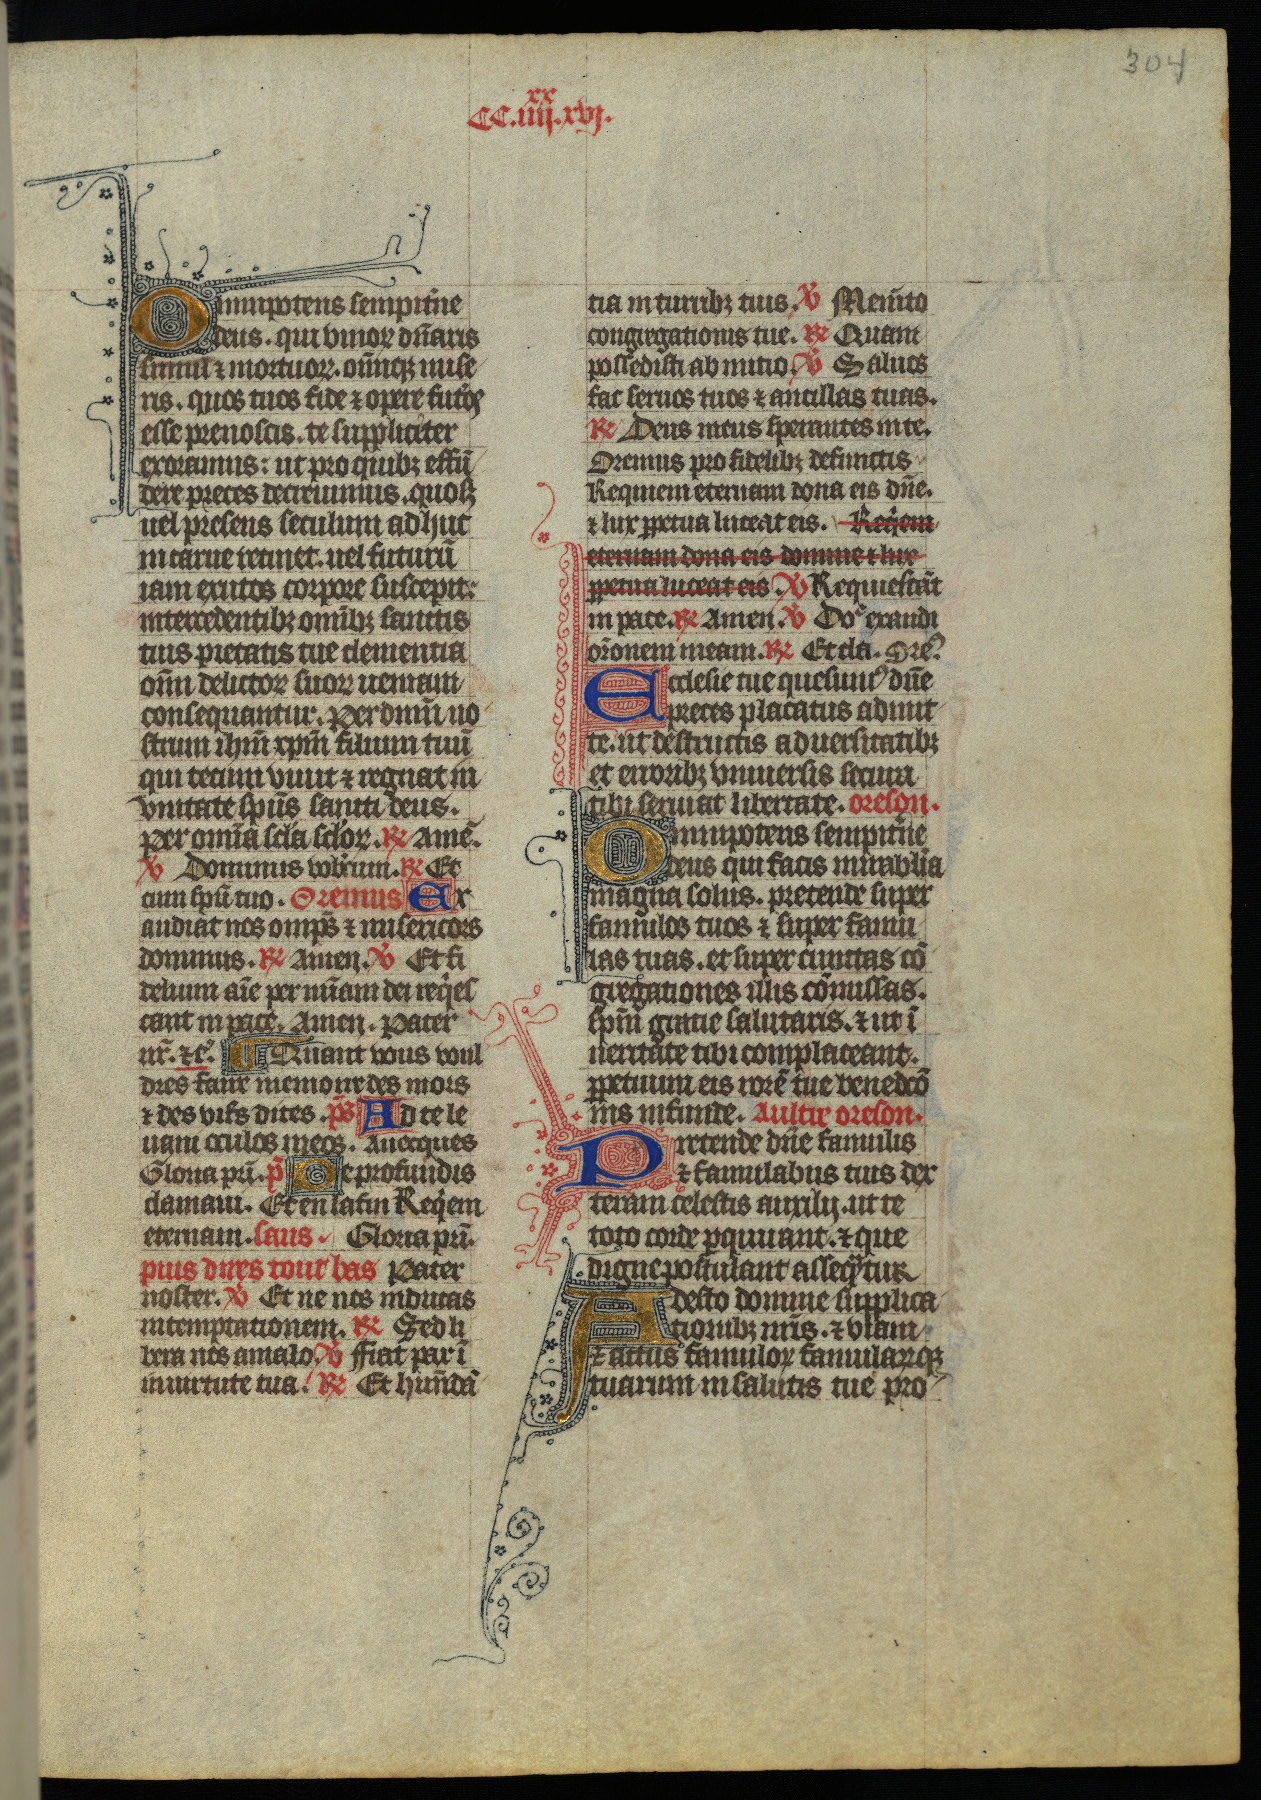 304
xx
CC.iiij.xvj.
Omnipotens sempit'ne
deus. qui viuoꝝ dn̄aris
simul ⁊ mortuoꝝ. omn̄iqꝫ mise
ris. quos tuos fide ⁊ opere futꝰos
esse prenoscis. te suppliciter
exoramus: ut pro quibꝫ effū
dere preces decreuimus. quosqꝫ
uel presens seculum adhuc
in carne retinet. uel futurū
iam exutos corpore suscepit:
intercedentibꝫ omībꝫ sanctis
tuis pietatis tue clementia
om̄i delictoꝝ suoꝝ ueniam
consequantur. Per dnm̄ no
strum ihm̄ xpm̄ filium tuū
qui tecum viuit ⁊ regnat in
vnitate sp̄us sancti deus.
Per omīa scl̄a scl̄oꝝ. ℟ Amē.
℣ Dominus vob̄cum. ℟ Et
cum spū tuo. Oremus Ex
audiat nos omp̄s ⁊ misericors
dominus. ℟ Amen. ℣ Et fi
delium aīe per mīam dei reqͥes
cant in pace. Amen. Pater
nr̄. ⁊cͤ. Quant vous voul
dres faire memoire des mors
⁊ des vifs dites. ps̄ Ad te le
uaui oculos meos. Auecques
Gloria pr̄i. p̄ De profundis
clamaui. Et en lafin Reqͥem
eternam. sans Gloria pr̄i.
puis dires tout bas Pater
noster. ℣ Et ne nos inducas
in temptationem. ℟ Sed li
bera nos amalo. ℣ ffiat pax ī
in uirtute tua. ℟ Et habun̄dā
tia in turribꝫ tuis. ℣ Mem̄to
congregationis tue. ℟ Quam
possedisti ab initio. ℣ Saluos
fac seruos tuos ⁊ ancillas tuas.
℟ Deus meus sperantes in te.
Oremus pro fidelibꝫ defunctis
Requiem eternam dona eis dn̄e.
⁊ lux ꝑpetua luceat eis. Reqͥem
eternam dona eis domine ⁊ lux
ꝑpetua luceat eis. ℣ Requiescāt
in pace. ℟ Amen. ℣ Dn̄e exaudi
or̄onem meam. ℟ Et cla. Orē.
Ecclesie tue quesumꝰ dn̄e
preces placatus admit
te. ut destructis aduersitatibꝫ
et erroribꝫ vniuersis secura
tibi seruiat libertate. oreson.
Omnipotens sempit'ne
deus qui facis mirabilia
magna solus. pretende super
famulos tuos ⁊ super famu
las tuas. et super cunctas cō
gregationes illis cōmissas.
spm̄ gratie salutaris. ⁊ ut ī
ueritate tibi complaceant.
ꝑpetuum eis rorē tue benedcō
nis infunde. Aultre oreson.
Pretende dn̄e famulis
⁊ famulabus tuis dex
teram celestis auxilij. ut te
toto corde ꝑquirant. ⁊ que
digne postulant asseqͥntur
Adesto domine supplica
tionibꝫ nr̄is. ⁊ viam
⁊ actus famuloꝝ famularꝝqꝫ
tuarum in salutis tue pro